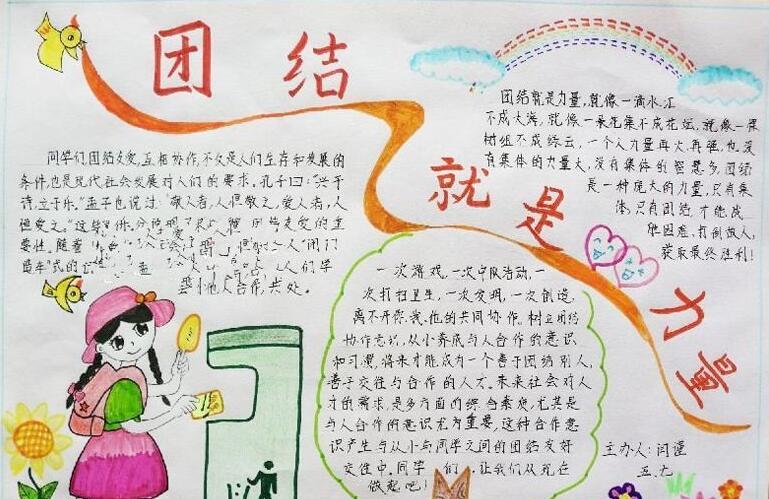 团结
就是
力量
同学们,团结友爱,互相协作,不仅是人们生存和发展的
条件,也是现代社会发展对人们的要求。孔子曰:“兴于
诗,立于乐。”孟子也说过:“敬人者,人恒敬之,爱人者,人
恒爱之。”这
要性。随着
团结就是力量,就像一滴水,汇
不成大海,就像一朵花集不成花坛,就像一棵
树组不成综云,一个人力量再大再强,也没
有集体的力量大,没有集体的智慧多,团结
是一种庞大的力量,只有集
体,只有团结,才能战
胜困难,打倒敌人,
获取最终胜利!
一次游戏,一次中队活动,一
次打扫卫生,一次发明,一次创造,
离不开你、我、他的共同协作。树立团结
协作意识,从小养成与人合作的意识
和习惯,将来才能成为一个善于团结别人,
善于交往与合作的人才。未来社会对人
才的需求,是多方面的综合素质,尤其是
与人合作的意识尤为重要,这种合作意
识产生与从小与同学之间的团结友好
交往中。同学们,让我们从现在
做起吧!
主办人:闫谨
五、九